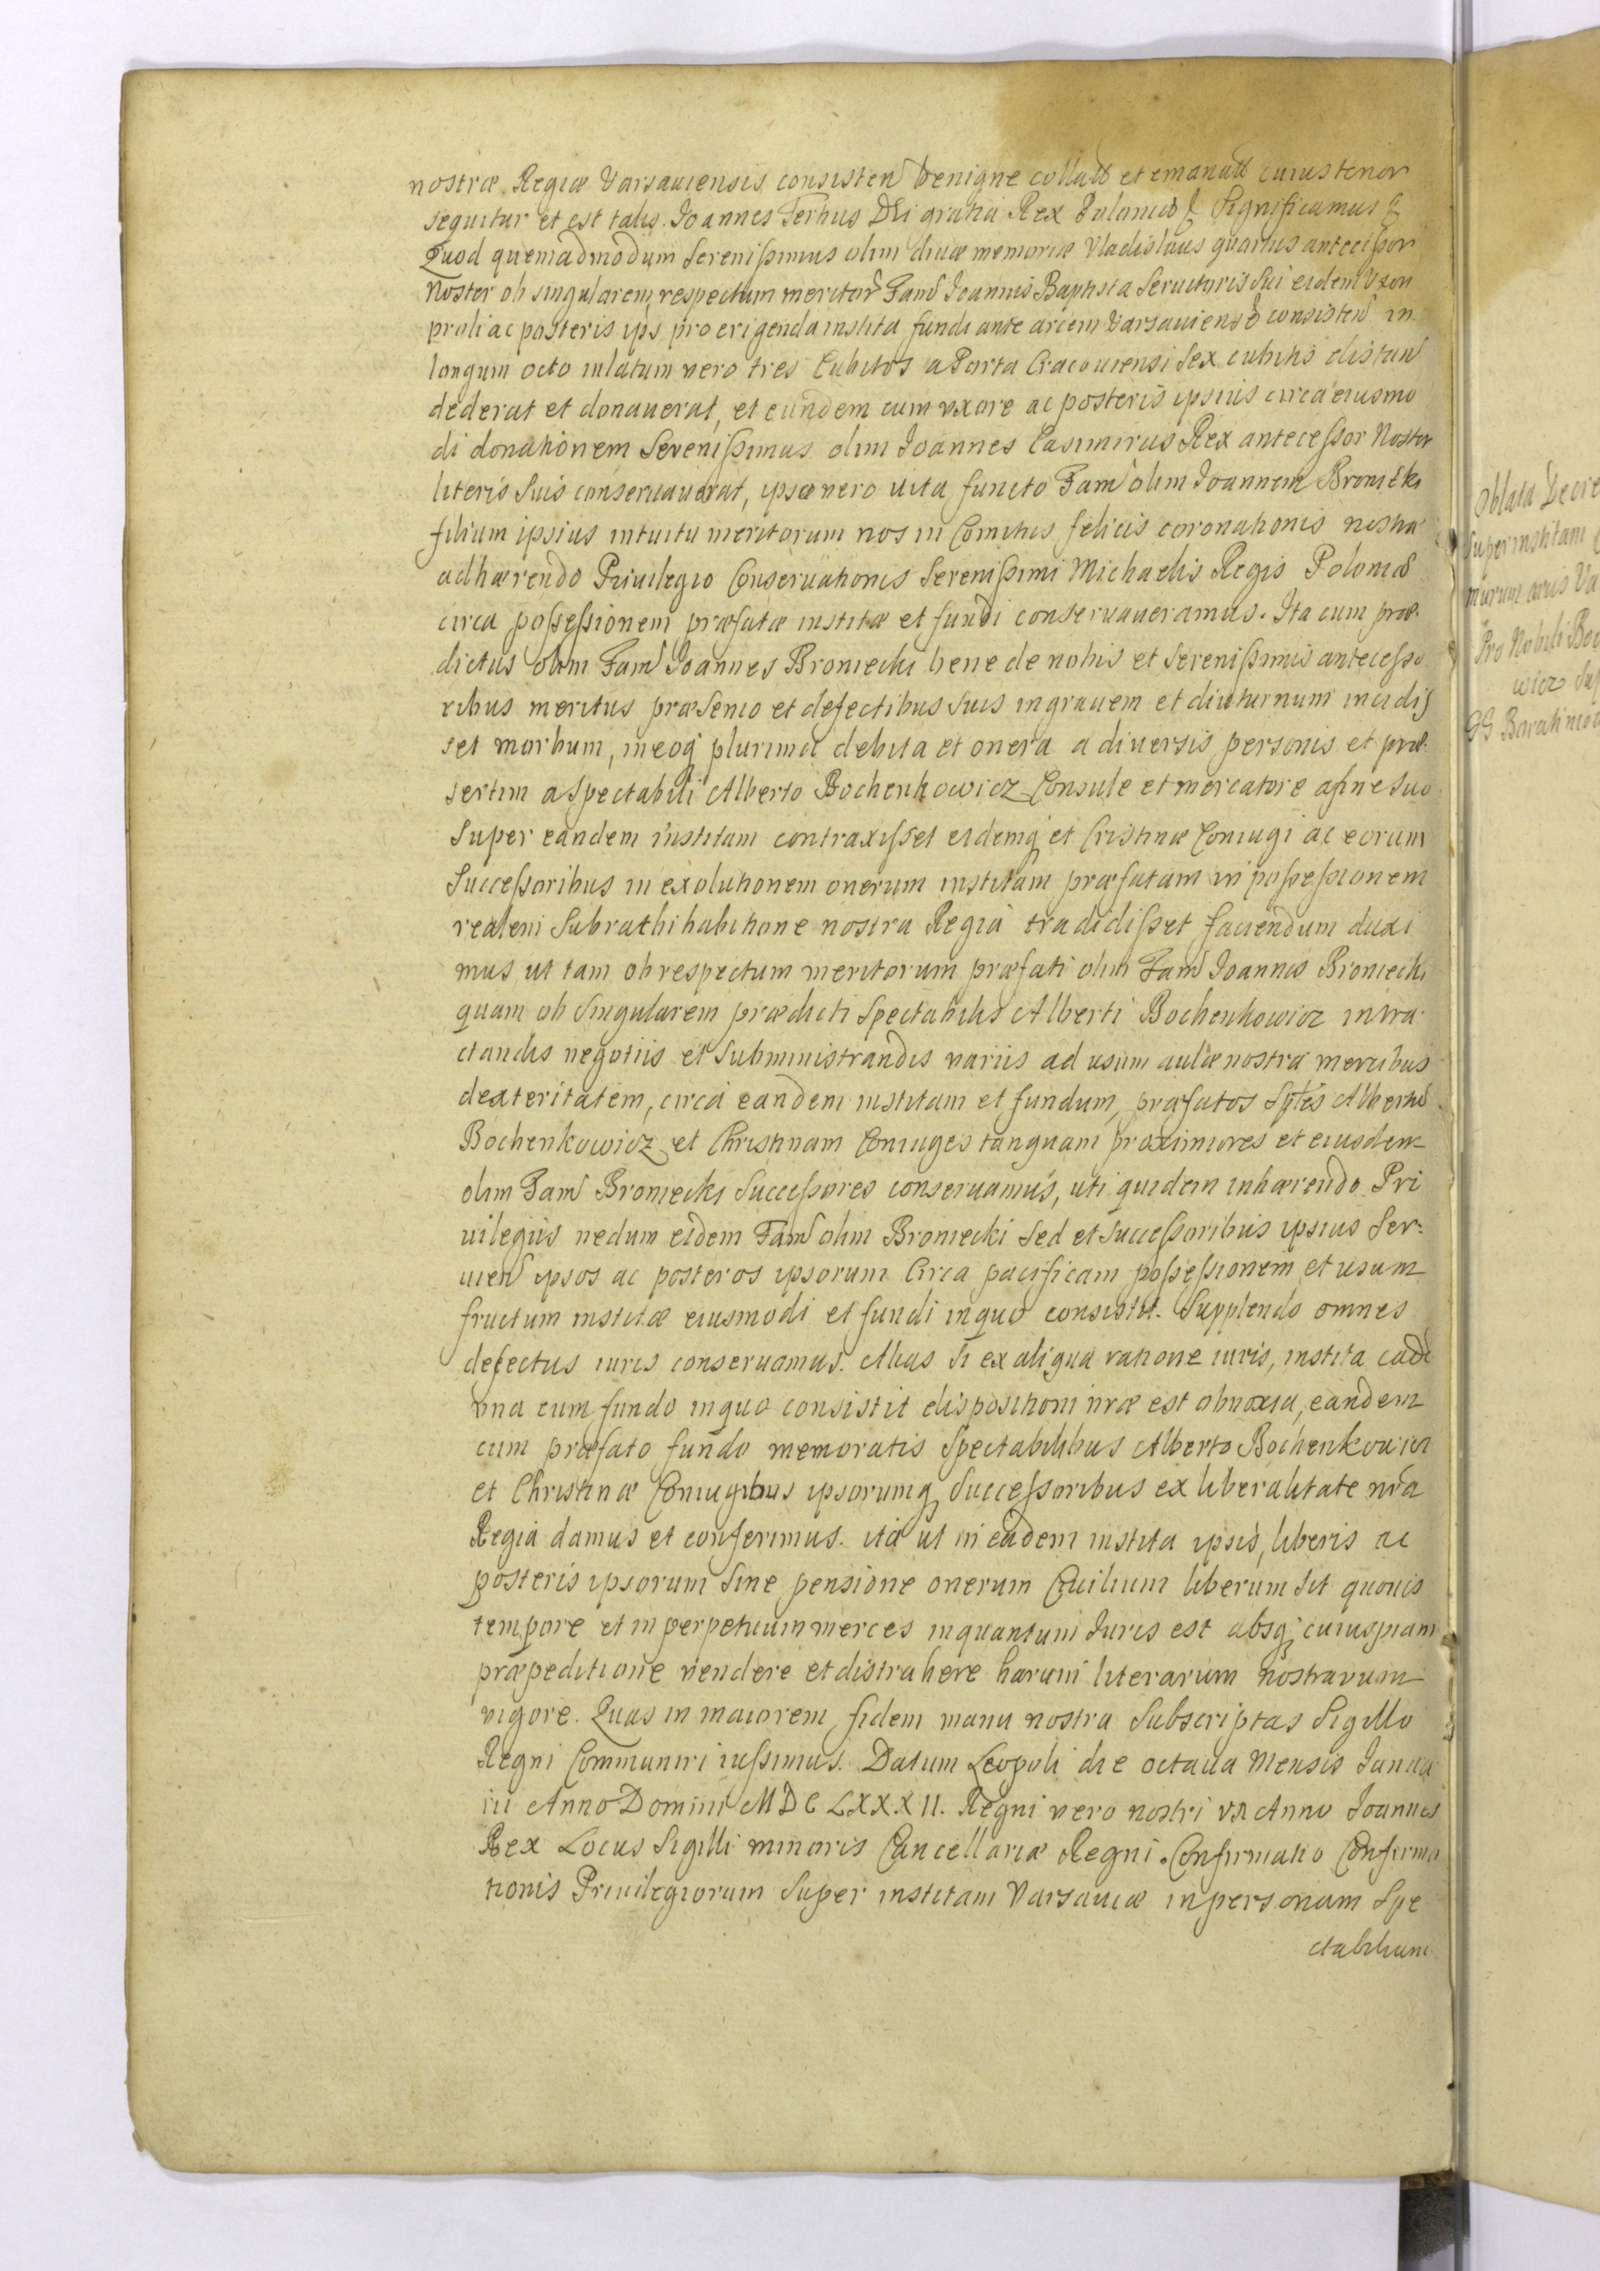 nostræ Regiæ Varsauiensis consisten benigne collatæ et emanatæ cuius tenor
sequitur et est talis. Joannes Tertius DEi gratia Rex Poloniæ & Significamus &
Quod quemadmodum Serenissimus olim diuæ memoriæ Vladislaus quartus antecessor
Noster ob singularem respectum meritor Fam Joannis Baptista Seruitoris Sui eidem Uxori
proli ac posteris ips pro erigenda instita fundi ante arcem Varsauiens consisten in
longum octo in latum vero tres Cubitos a Porta Cracouiensi Sex cubitis distan
dederat et donauerat, et eundem cum uxore ac posteris ipsius circa eiusmo
di donationem Serenissimus olim Joannes Casimirus Rex antecessor Noster
literis Suis conseruauerat, ipso vero uita functo Fam olim Joannem Broniecki
filium ipsius intuitu meritorum nos in Comitiis felicis coronationis nostræ
adhærendo Priuilegio Conseruationis Serenissimi Michaelis Regis Poloniæ
circa possessionem præfatæ institæ et fundi conseruaueramus. Ita cum præ-
dictus olim Fam Joannes Broniecki bene de nobis et Serenissimis antecesso
ribus meritus præ Senio et defectibus suis in grauem et diuturnum incidis
set morbum, in eoq plurima debita et onera a diuersis personis et præ-
sertim a Spectabili Alberto Bochenkowicz Consule et mercatore afine Suo
Super eandem institam contraxisset eidemq et Cristinæ Coniugi ac eorum
Successoribus in exolutionem onerum institam præfatam in possessionem
realem Sub rathihabitione nostra Regia tradidisset faciendum duxi
mus, ut tam ob respectum meritorum præfati olim Fam Joannis Broniecki
quam ob Singularem prædicti Spectabilis Alberti Bochenkowicz in tra-
ctandis negotiis et Subministrandis variis ad usum aulæ nostræ mercibus
dexteritatem, circa eandem institam et fundum præfatos Sptes Albertum
Bochenkowicz et Christinam Coniuges tanquam proximiores et eiusdem
olim Fam Broniecki Successores conseruamus, uti quidem inhærendo Pri
uilegiis nedum eidem Fam olim Broniecki Sed et Successoribus ipsius Ser-
uien ipsos ac posteros ipsorum Circa pacificam possessionem et usum
fructum institæ eiusmodi et fundi in quo consistit. Supplendo omnes
defectus iuris conseruamus. Alias Si ex aliqua ratione iuris, instita eade
vna cum fundo in quo consistit dispositioni nræ est obnoxia, eandem
cum præfato fundo memoratis Spectabilibus Alberto Bochenkowicz
et Christinæ Coniugibus ipsorumq Successoribus ex liberalitate nra
Regia damus et conferimus. ita ut in eadem instita ipsis, liberis ac
posteris ipsorum Sine pensione onerum Ciuilium liberum Sit quouis
tempore et in perpetuum merces in quantum Juris est absq cuiuspiam
præpeditione vendere et distrahere harum literarum nostrarum
vigore. Quas in maiorem fidem manu nostra Subscriptas Sigillo
Regni Communiri iussimus. Datum Leopoli die octaua Mensis Janua
rii Anno Domini MDCLXXXII. Regni vero nostri VII Anno Joannes
Rex Locus Sigilli minoris Cancellariæ Regni. Confirmatio Confirma
tionis Priuilegiorum Super institam Varsauiæ in personam Spe
ctabilium
Oblata Decre
Super institam
murum arcis Va
Pro Nobili Boc
wicz
GG